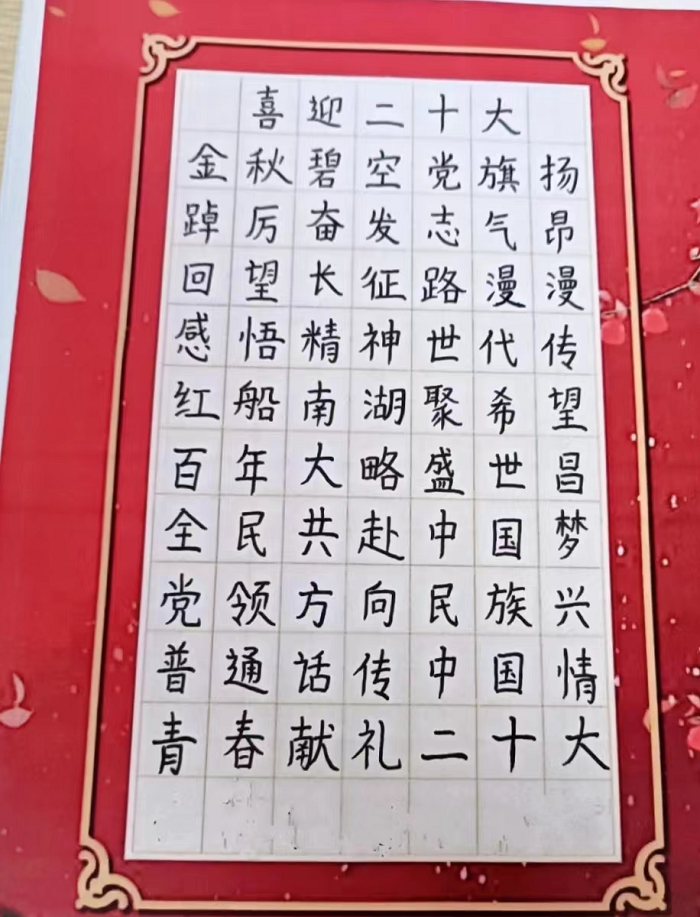 喜迎二十大
金秋碧空党旗扬
踔厉奋发志气昂
回望长征路漫漫
感悟精神世代传
红船南湖聚希望
百年大略盛世昌
全民共赴中国梦
党领方向民族兴
普通话传中国情
青春献礼二十大